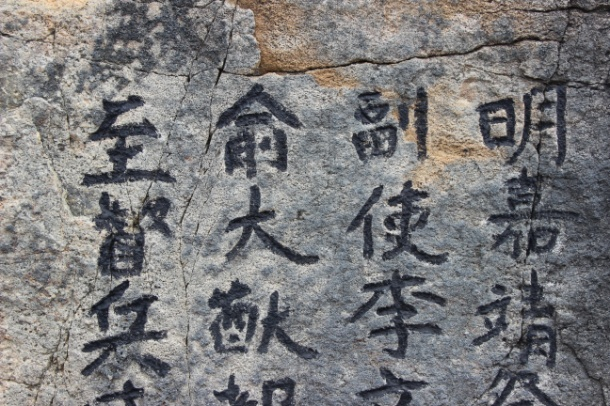 明嘉靖
副使李
俞大猷
至督兵